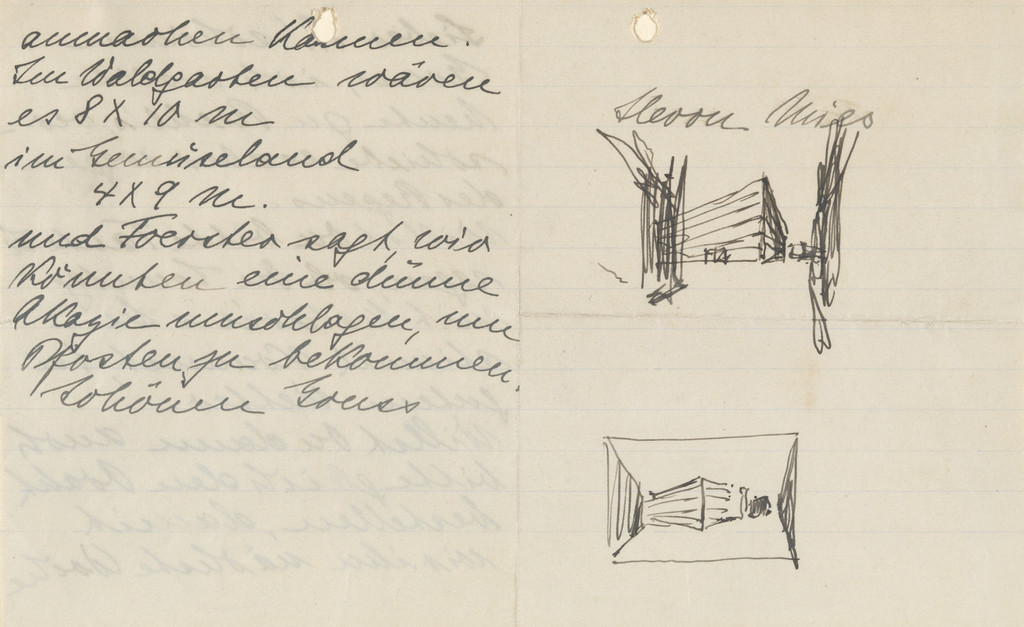 anmachen können.
Im Waldgarten wären
es 8 X 10 m
im Gemüseland
4 X 9 m.
und Foerster sagt, wir
könnten eine dünne
Akazie umschlagen, um
Pfosten zu bekommen.
Schönen Gruss
Herrn Mies